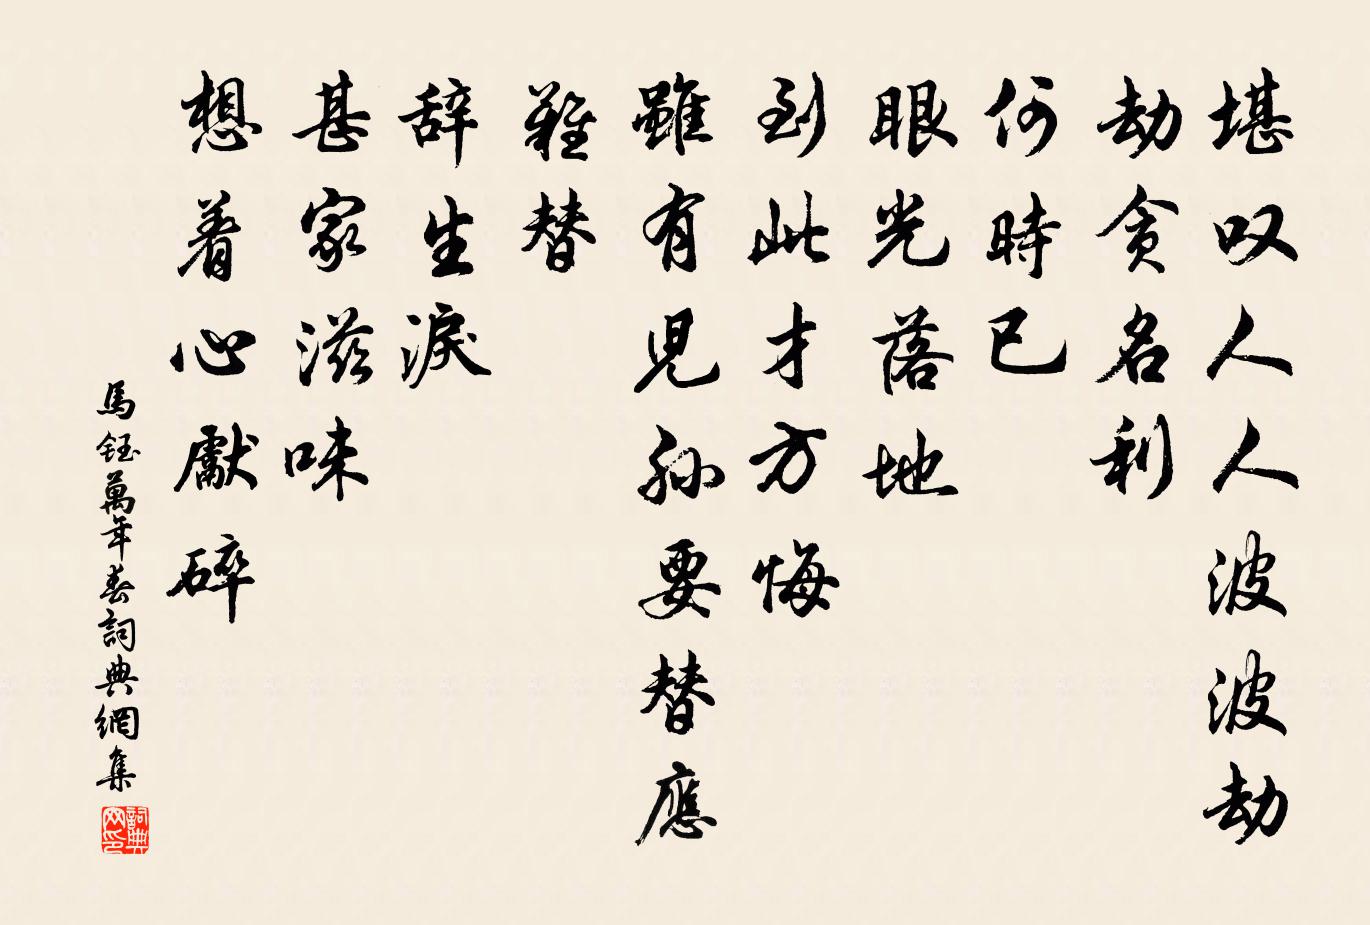 堪叹人人波波劫
劫贪名利
何時已
眼光落地
到此才方悔
雖有児孙要替應
難替
辞生淚
甚家滋味
想着心獻碎
馬鈺萬年春詞典網集
詞典网印